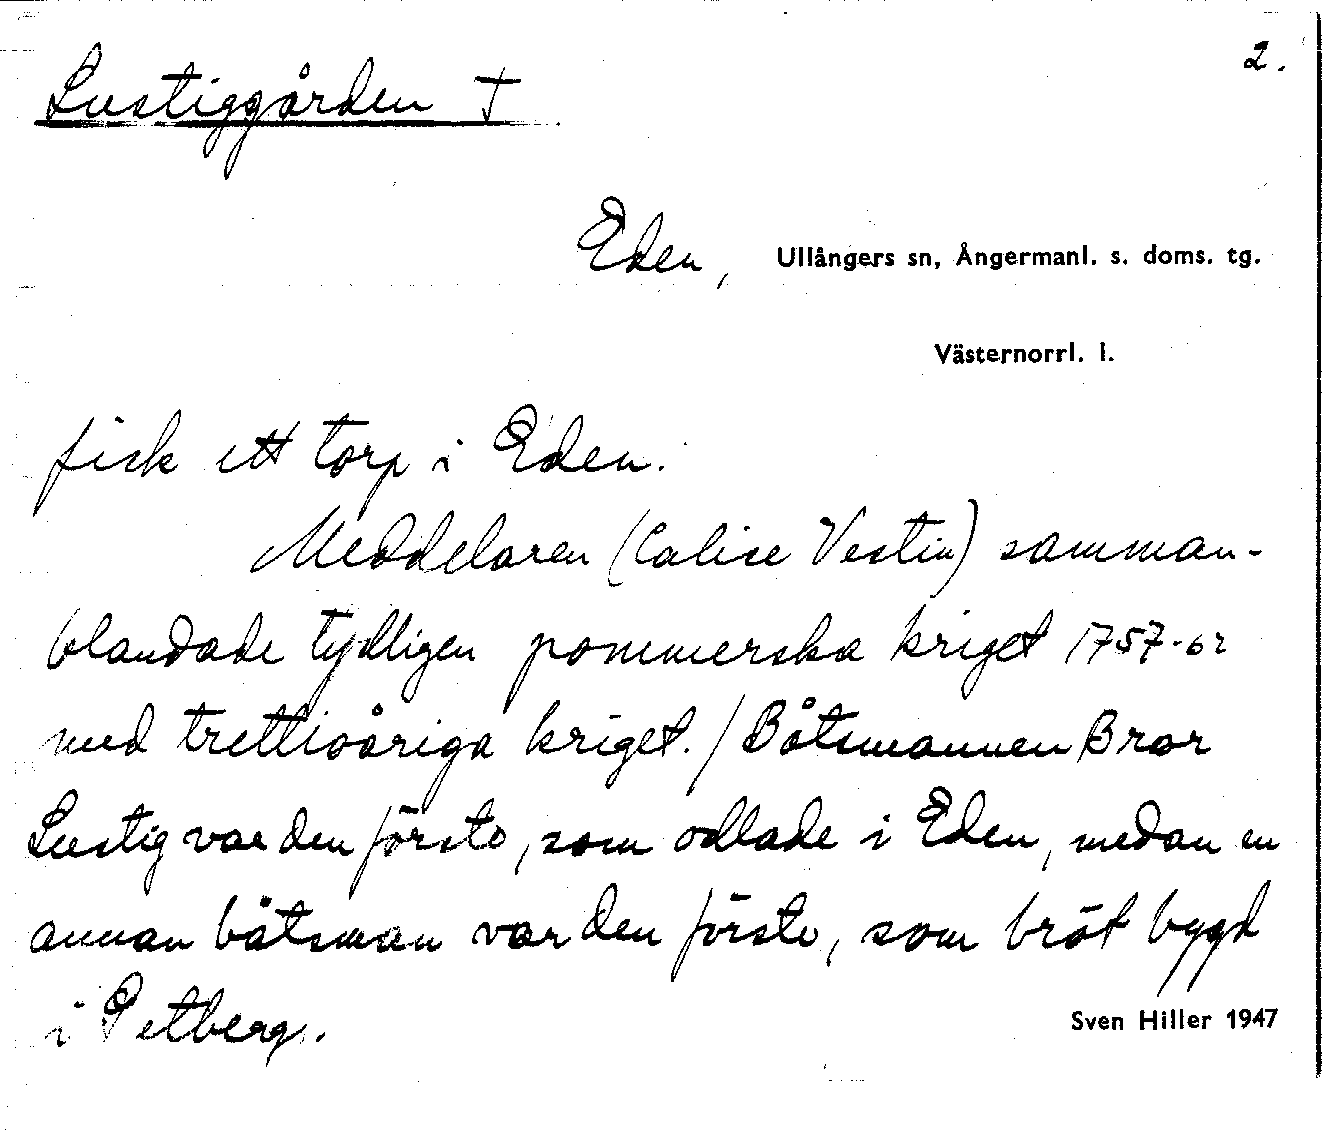 2.
Lustiggården †
Eden, Ullångers sn, Ångermanl. s. doms. tg.
Västernorrl. l.
fick ett torp i Eden.
Meddelaren (Calise Vestin) samman-
blandade tydligen pommerska kriget 1757-62
med trettioåriga kriget./Båtsmannen Bror
Lustig var den förste, som odlade i Eden, medan en
annan båtsman var den förste, som bröt bygd
i Petberg.
Sven Hiller 1947